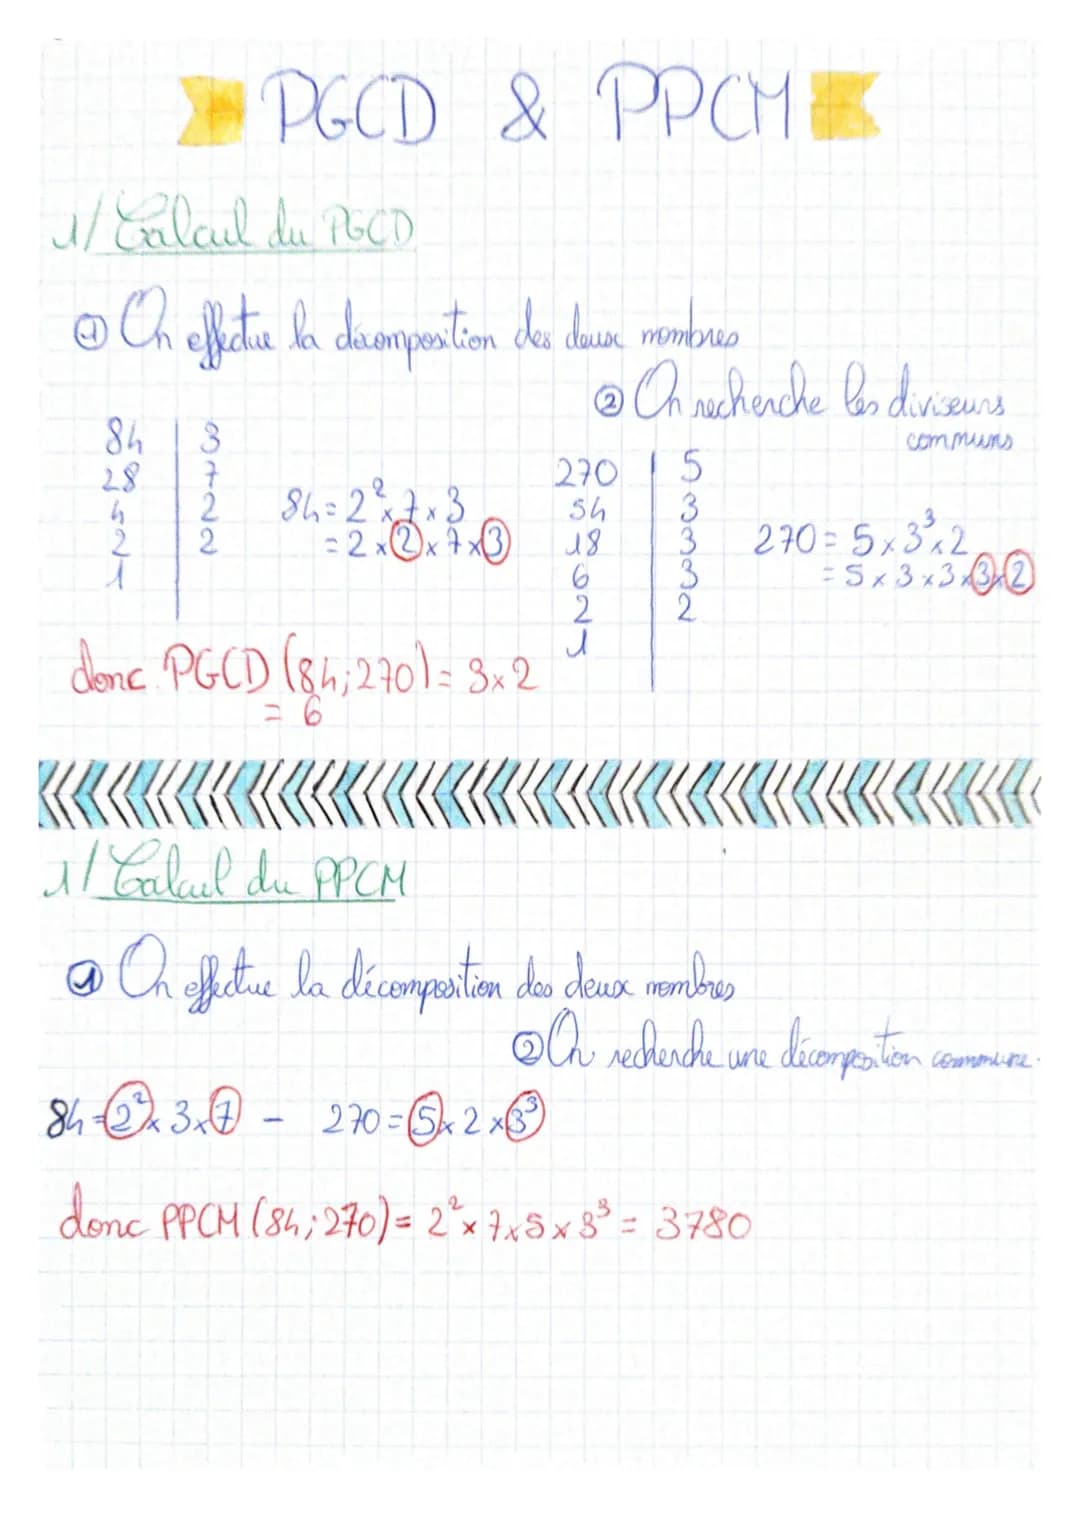 PGCD & PPCM
1/ Calcul du PGCD
① On effectue la décomposition des deux nombres
② On recherche les diviseurs
communs
84 | 3
28 | 7
4 | 2
2 | 2
1
84 = 2² x 7 x 3
= 2 x 2 x 7 x 3
270 | 5
54 | 3
18 | 3
6 | 3
2 | 2
1
270 = 5 x 3³ x 2
= 5 x 3 x 3 x 3 x 2
donc PGCD (84; 270) = 3 x 2
= 6
1/ Calcul du PPCM
① On effectue la décomposition des deux nombres
② On recherche une décomposition commune.
84 = 2² x 3 x 7 - 270 = 5 x 2 x 3³
donc PPCM (84; 270) = 2² x 7 x 5 x 3³ = 3780